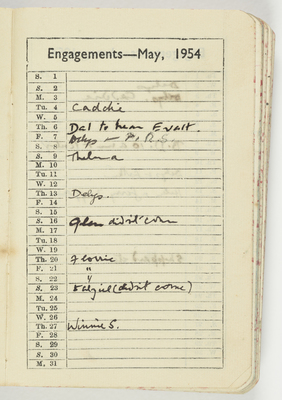 Engagements—May, 1954
S. 1
S. 2
M. 3
Tu. 4 Caddie
W. 5
Th. 6 Dal to hear Evatt.
F. 7 Delys —
S. 8
S. 9 Thelma
M. 10
Tu. 11
W. 12
Th. 13 Delys.
F. 14
S. 15
S. 16 Glen didn't come
M. 17
Tu. 18
W. 19
Th. 20 Florrie
F. 21 "
S. 22 "
S. 23 (didn't come)
M. 24
Tu. 25
W. 26
Th. 27 Winnie S.
F. 28
S. 29
S. 30
M. 31